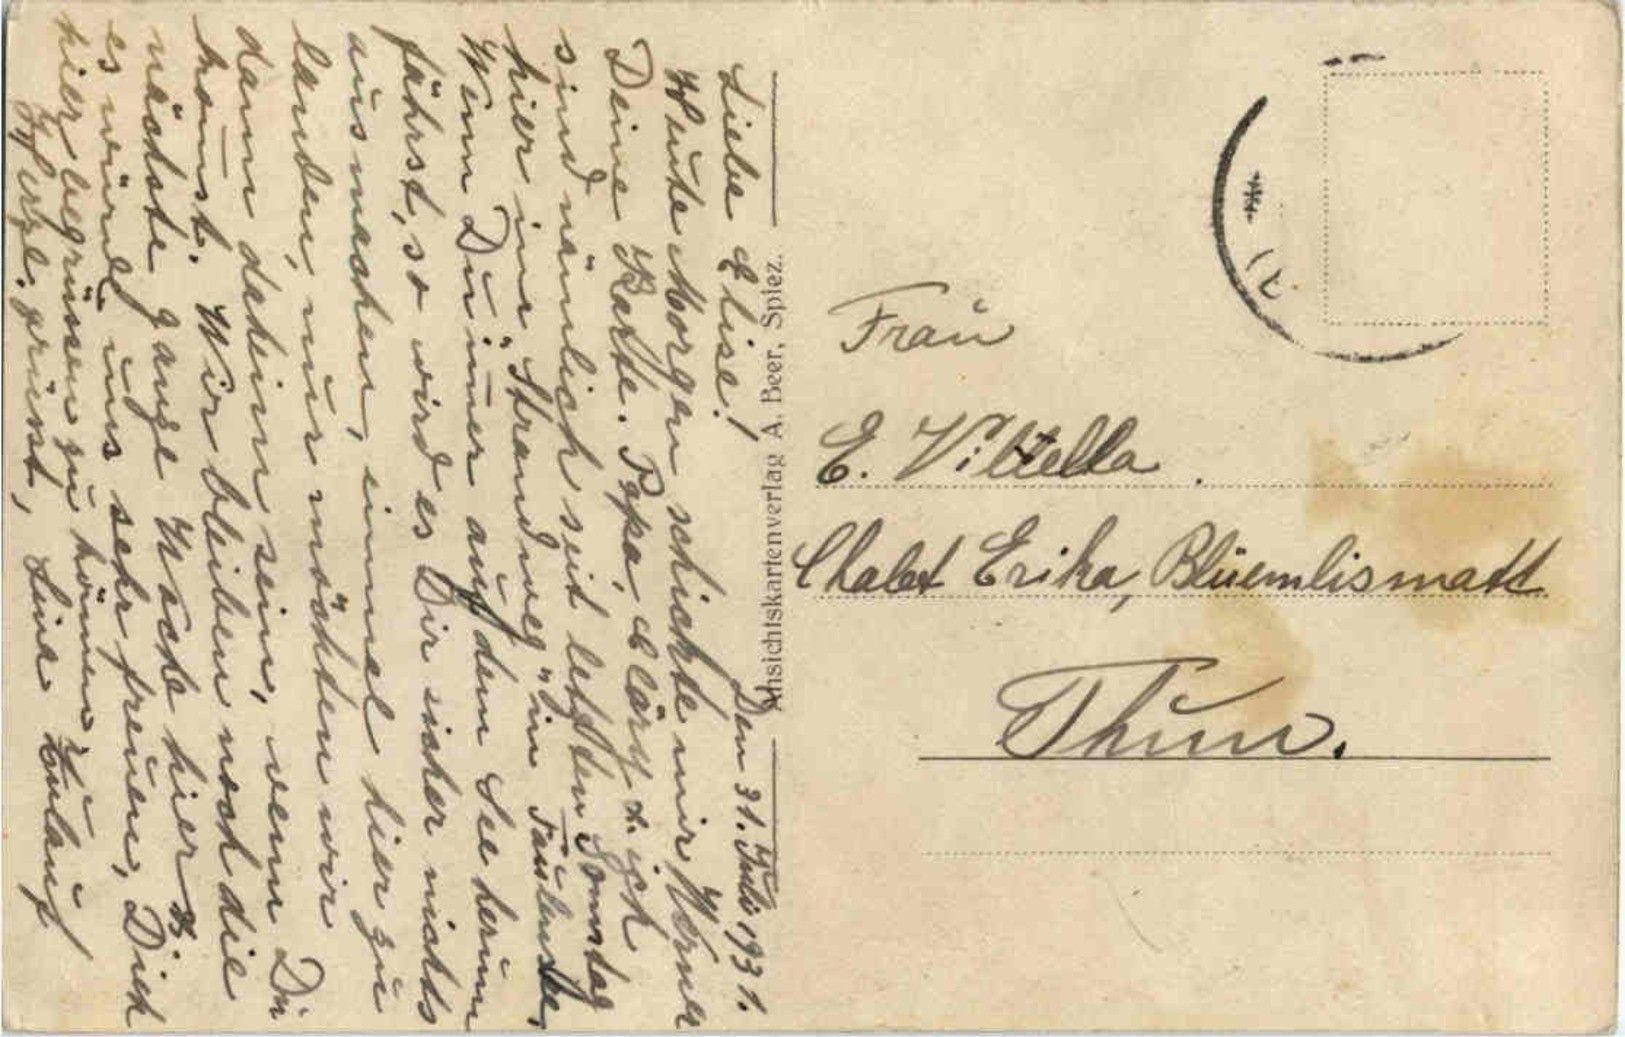 Den 31. Juli 1931.
Liebe Elise!
Heute Morgen schickte mir Werner
Deine Karte. Papa, Cläry u. ich
sind nämlich seit letzten Sonntag
hier im „Strandweg" in Faulensee,
Wenn Du immer auf den See herum
fährst, so wird es Dir sicher nichts
ausmachen, einmal hier zu
landen, nur möchten wir
dann daheim sein, wenn Du
kom̄st. Wir bleiben noch die
nächste ganze Woche hier u.
es würde uns sehr freuen, Dich
hier begrüssen zu können.
Herzl. grüsst, Lina
Ansichtskartenverlag A. Beer, Spiez.
Frau
E. Vittella.
Chalet Erika, Blüemlismatt
Thun.